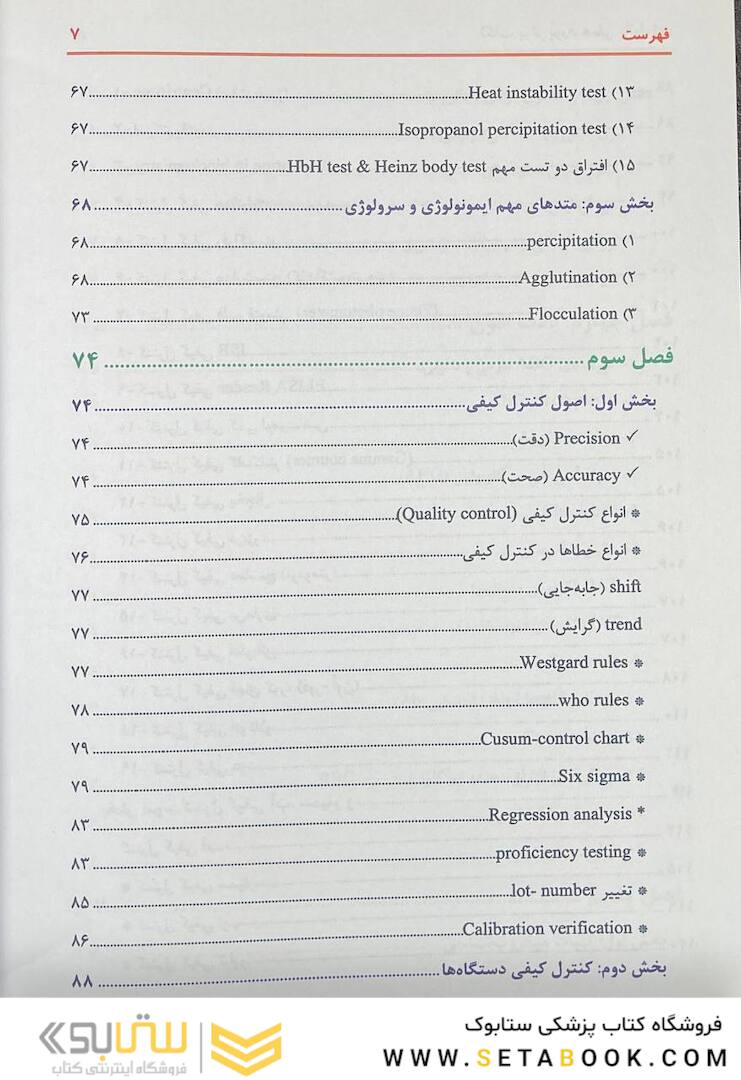 فهرست ۷
۱۳) Heat instability test ۶۷
۱۴) Isopropanol percipitation test ۶۷
۱۵) افتراق دو تست مهم HbH test & Heinz body test ۶۷
بخش سوم: متدهای مهم ایمونولوژی و سرولوژی ۶۸
۱) percipitation ۶۸
۲) Agglutination ۶۸
۳) Flocculation ۷۳
فصل سوم ۷۴
بخش اول: اصول کنترل کیفی ۷۴
✓ Precision (دقت) ۷۴
✓ Accuracy (صحت) ۷۴
* انواع کنترل کیفی (Quality control) ۷۵
* انواع خطاها در کنترل کیفی ۷۶
shift (جابه‌جایی) ۷۷
trend (گرایش) ۷۷
* Westgard rules ۷۷
* who rules ۷۸
* Cusum-control chart ۷۹
* Six sigma ۷۹
* Regression analysis ۸۳
* proficiency testing ۸۳
* تغییر lot- number ۸۵
* Calibration verification ۸۶
بخش دوم: کنترل کیفی دستگاه‌ها ۸۸
فروشگاه کتاب پزشکی ستابوک
WWW.SETABOOK.COM
ستابوک
فروشگاه اینترنتی کتاب